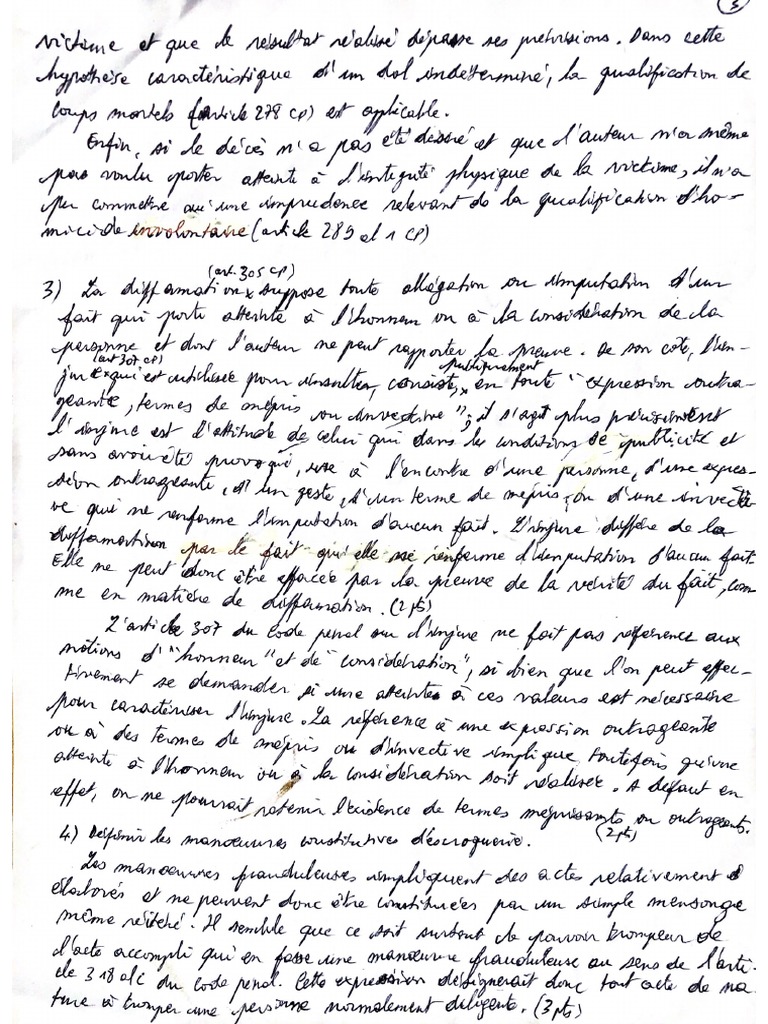 5
victime et que le résultat réalisé dépasse ses prévisions. Dans cette
hypothèse caractéristique d'un dol indéterminé, la qualification de
coups mortels (article 278 CP) est applicable.
Enfin, si le décès n'a pas été désiré et que l'auteur n'a même
pas voulu porter atteinte à l'intégrité physique de la victime, il n'a
pu commettre qu'une imprudence relevant de la qualification d'ho-
micide involontaire (article 289 al 1 CP)
(art. 305 CP)
3) La diffamation x suppose toute allégation ou imputation d'un
fait qui porte atteinte à l'honneur ou à la considération de la
personne et dont l'auteur ne peut rapporter la preuve. De son côté, l'in-
(art 307 CP) publiquement
jure x qui est utilisée pour insulter, consiste, x en toute "expression outra-
geante, termes de mépris ou invective"; il s'agit plus précisément
l'injure est l'attitude de celui qui dans les conditions de publicité et
sans avoir été provoqué, use à l'encontre d'une personne, d'une expres-
sion outrageante, d'un geste, d'un terme de mépris, ou d'une invecti-
ve qui ne renferme l'imputation d'aucun fait. L'injure diffère de la
diffamation par le fait qu'elle ne renferme l'imputation d'aucun fait.
Elle ne peut donc être effacée par la preuve de la vérité du fait, com-
me en matière de diffamation. (2 pts)
L'article 307 du code pénal sur l'injure ne fait pas référence aux
notions d'"honneur" et de "considération", si bien que l'on peut effec-
tivement se demander si une atteinte à ces valeurs est nécessaire
pour caractériser l'injure. La référence à une expression outrageante
ou à des termes de mépris ou d'invective implique toutefois qu'une
atteinte à l'honneur ou à la considération soit réalisée. A défaut en
effet, on ne pourrait retenir l'existence de termes méprisants ou outrageants.
(2 pts)
4) Définir les manœuvres constitutives d'escroquerie.
Les manœuvres frauduleuses impliquent des actes relativement
élaborés et ne peuvent donc être constituées par un simple mensonge
même réitéré. Il semble que ce soit surtout le pouvoir trompeur de
l'acte accompli qui en fasse une manœuvre frauduleuse au sens de l'arti-
cle 318 al c du code pénal. Cette expression désignerait donc tout acte de na-
ture à tromper une personne normalement diligente. (3 pts)